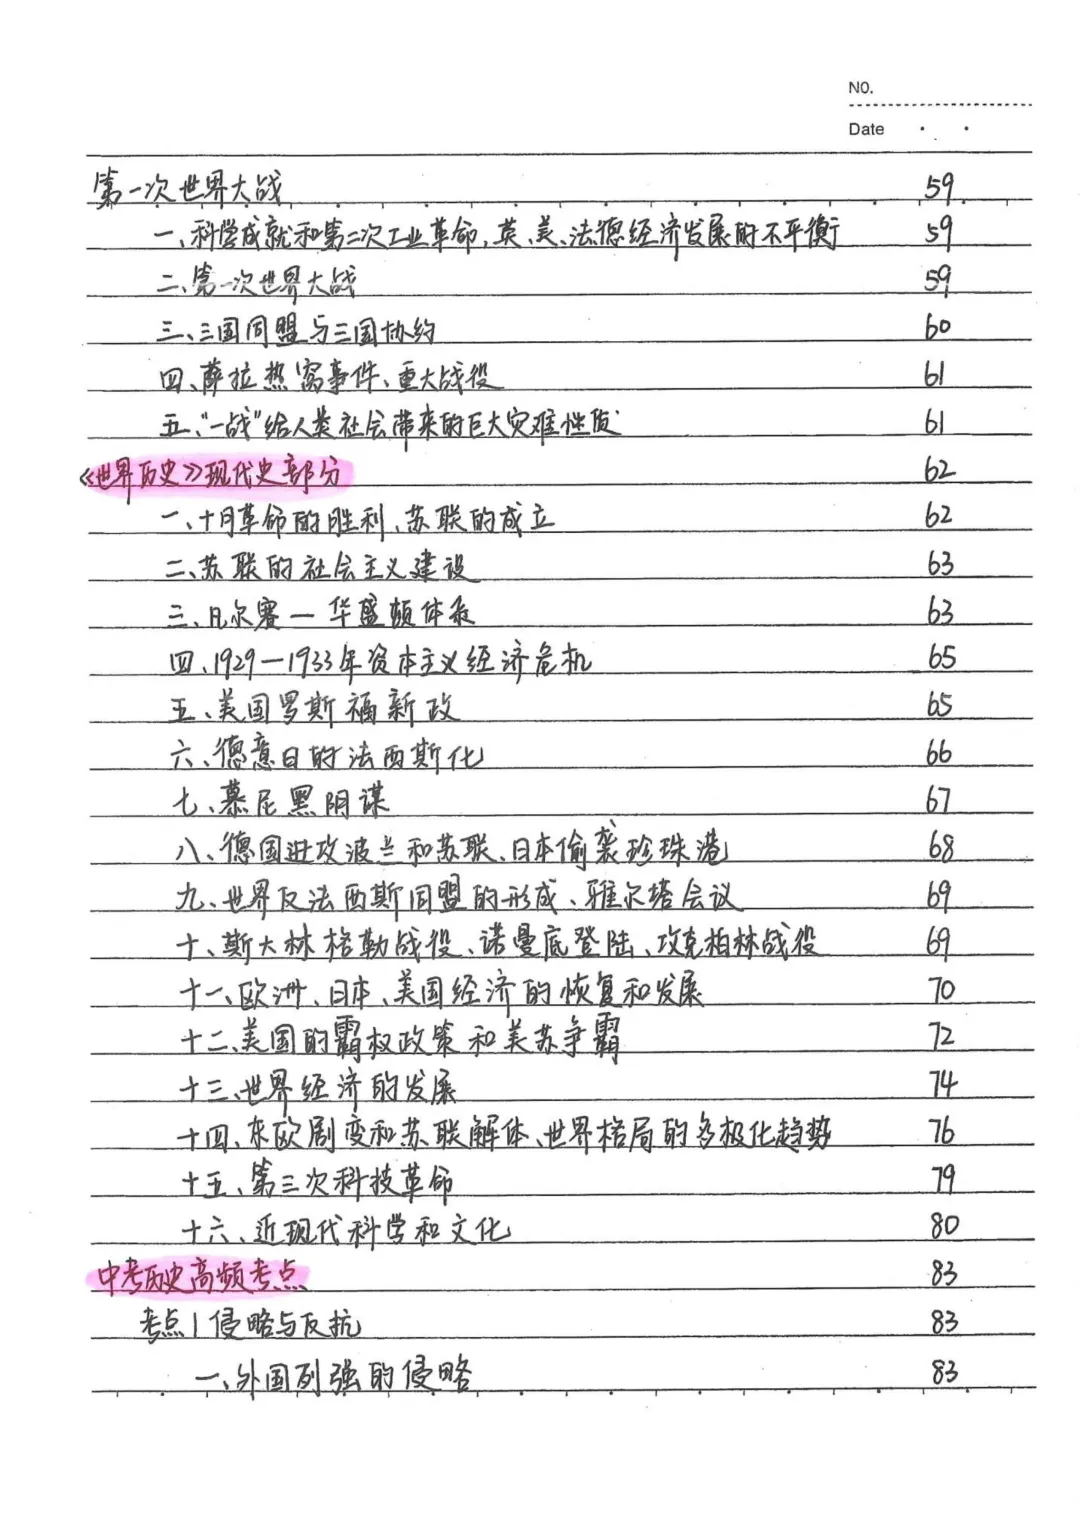 NO.
Date
第一次世界大战 59
一、科学成就和第二次工业革命,英、美、法德经济发展的不平衡 59
二、第一次世界大战 59
三、三国同盟与三国协约 60
四、萨拉热窝事件、重大战役 61
五、“一战”给人类社会带来的巨大灾难性质 61
《世界历史》现代史部分 62
一、十月革命的胜利、苏联的成立 62
二、苏联的社会主义建设 63
三、凡尔赛一华盛顿体系 63
四、1929—1933年资本主义经济危机 65
五、美国罗斯福新政 65
六、德意日的法西斯化 66
七、慕尼黑阴谋 67
八、德国进攻波兰和苏联、日本偷袭珍珠港 68
九、世界反法西斯同盟的形成、雅尔塔会议 69
十、斯大林格勒战役、诺曼底登陆、攻克柏林战役 69
十一、欧洲、日本、美国经济的恢复和发展 70
十二、美国的霸权政策和美苏争霸 72
十三、世界经济的发展 74
十四、东欧剧变和苏联解体、世界格局的多极化趋势 76
十五、第三次科技革命 79
十六、近现代科学和文化 80
中考历史高频考点 83
考点1 侵略与反抗 83
一、外国列强的侵略 83